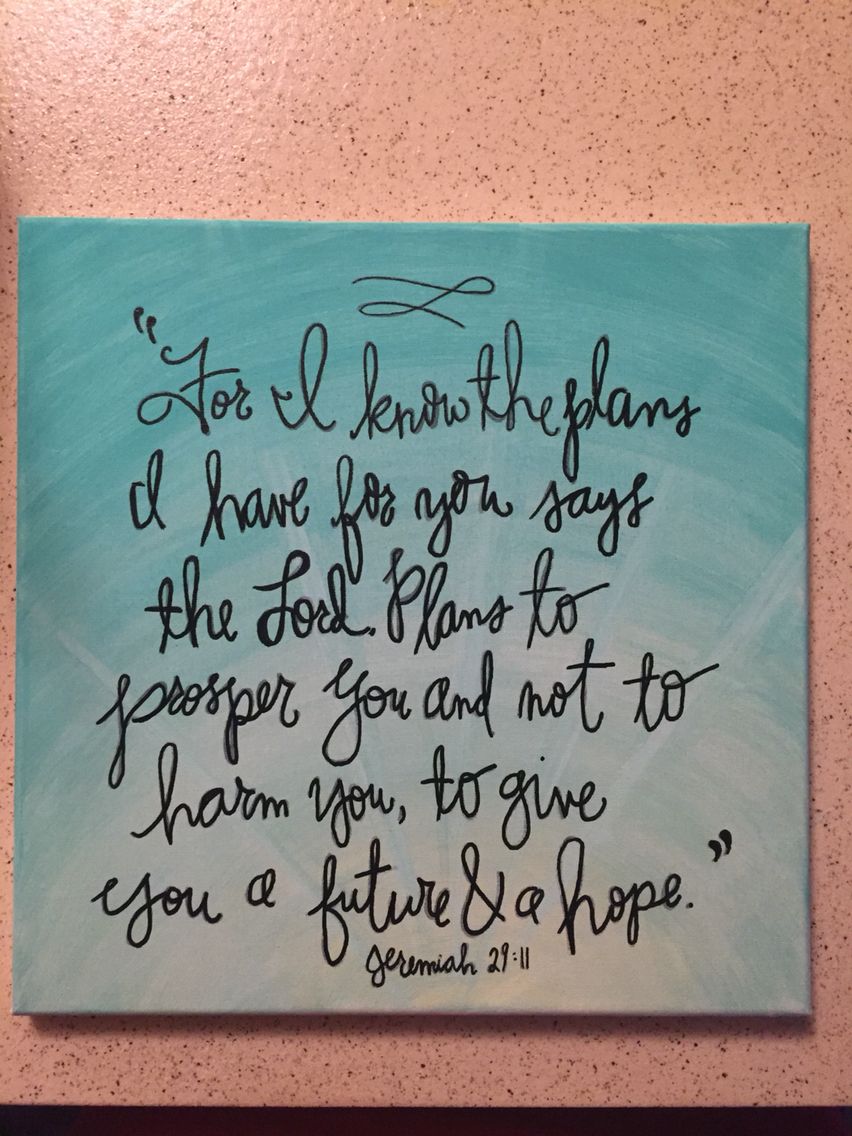 “For I know the plans
I have for you says
the Lord. Plans to
prosper you and not to
harm you, to give
you a future & a hope.”
Jeremiah 29:11